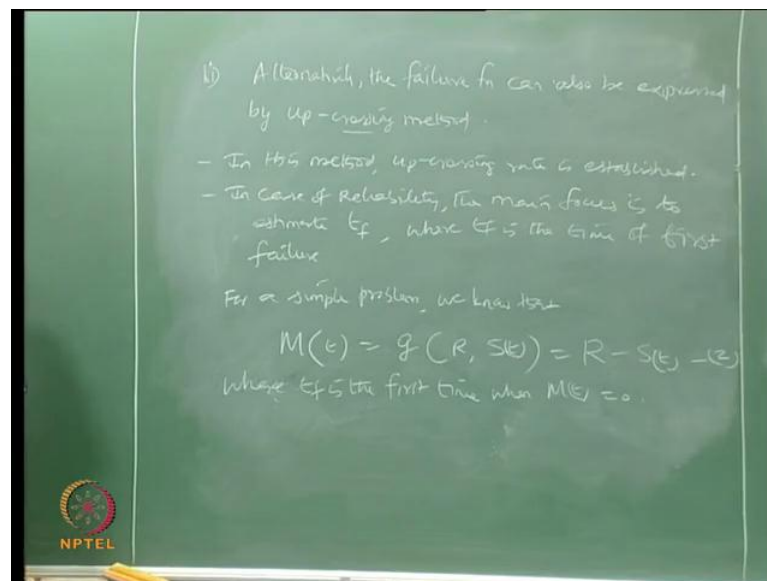 ii) Alternatively, the failure fn can also be expressed
by up-crossing method.
- In this method, up-crossing rate is established.
- In case of Reliability, the main focus is to
estimate tf, where tf is the time of first
failure
For a simple problem, we know that
M(t) = g(R, S(t)) = R - S(t) -(2)
where tf is the first time when M(t) = 0.
NPTEL